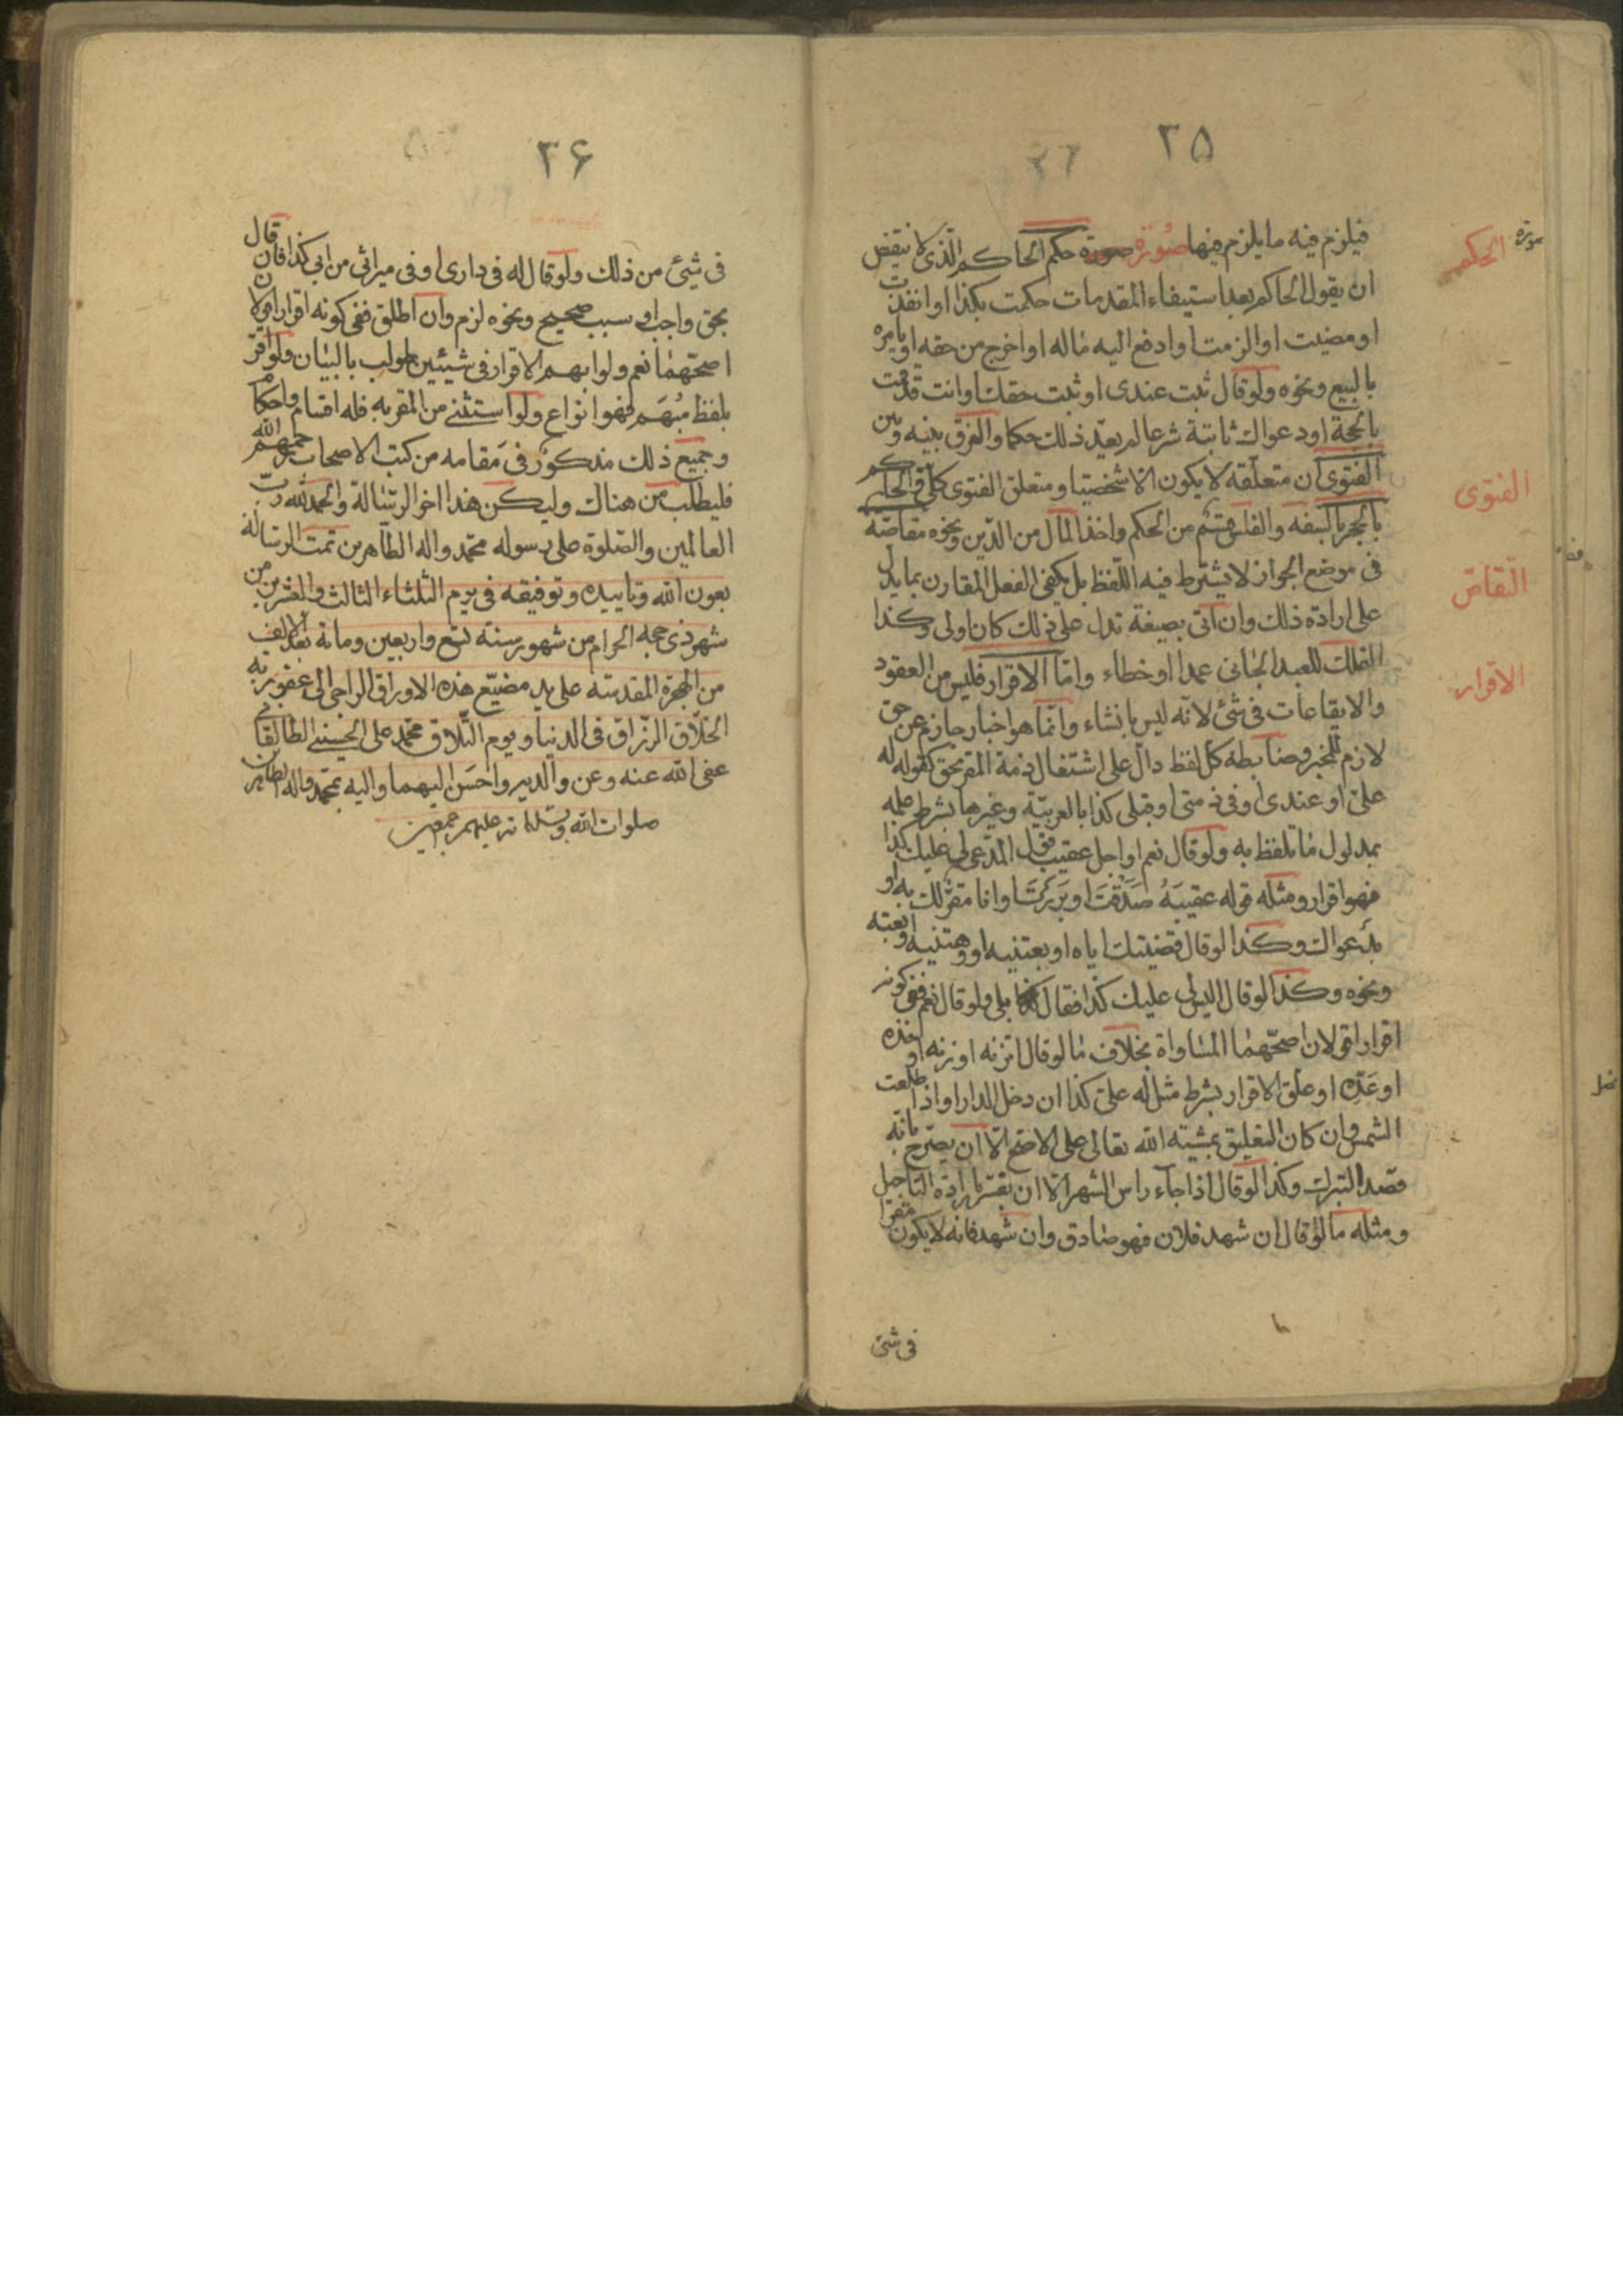 ٢٥
فيلزم فيه ما يلزم فيها صورة حكم الحاكم الذى لا ينقض
ان يقول الحاكم بعد استيفاء المقدمات حكمت بكذا او انفذت
او مضيت او الزمت او ادفع اليه ماله او اخرج من حقه او يامره
بالبيع ونحوه ولو قال ثبت عندى او ثبت حقك او انت قد قمت
بالحجة او دعواك ثابتة شرعا لم يعد ذلك حكما والفرق بينه وبين
الفتوى ان متعلقه لا يكون الا شخصيا ومتعلق الفتوى كلى والحكم
بالحجر بالسفه والفلس قسم من الحكم واخذ المال من الدين ونحوه مقاصة
فى موضع الجواز لا يشترط فيه اللفظ بل يكفى الفعل المقارن بما يدل
على ارادة ذلك وان اتى بصيغة تدل على ذلك كان اولى وكذا
التملك للعبد الجانى عمدا او خطاء واما الاقرار فليس من العقود
والايقاعات فى شئ لانه ليس بانشاء وانما هو اخبار جازم عن حق
لازم للمخبر وضابطه كل لفظ دال على اشتغال ذمة المقر بحق كقوله له
على او عندى او فى ذمتى او قبلى كذا بالعربية وغيرها بشرط علمه
بمدلول ما تلفظ به ولو قال نعم او اجل عقيب قول المدعى لى عليك كذا
فهو اقرار ومثله قوله عقيبه صدقت او بررت او انا مقر لك به او
بدعواك وكذا لو قال قضيتك اياه او بعتنيه او وهبتنيه او بعته
ونحوه وكذا لو قال اليس لى عليك كذا فقال بلى ولو قال نعم ففى كونه
اقرارا قولان اصحهما المساواة بخلاف ما لو قال اتزنه او زنه او خذه
او عده او علق الاقرار بشرط مثل له على كذا ان دخل الدار او اذا طلعت
الشمس وان كان التعليق بمشية الله تعالى على الاصح الا ان يصرح بانه
قصد التبرك وكذا لو قال اذا جاء راس الشهر الا ان يفسر بارادة التاجيل
ومثله ما لو قال ان شهد فلان فهو صادق وان شهد فانه لا يكون مقرا
فى شئ
صورة الحكم
الفتوى
التقاص
الاقرار
٢۶
فى شيئ من ذلك ولو قال له فى دارى او فى ميراثى من ابى كذا فان قال
بحق واجب او سبب صحيح ونحوه لزم وان اطلق ففى كونه اقرارا قولان
اصحهما نعم ولو ابهم الاقرار فى شيئين طولب بالبيان ولو اقر
بلفظ مبهم فهو انواع ولو استثنى من المقر به فله اقسام واحكام
وجميع ذلك مذكور فى مقامه من كتب الاصحاب رحمهم الله
فليطلب من هناك وليكن هذا اخر الرسالة والحمد لله رب
العالمين والصلوة على رسوله محمد واله الطاهرين تمت الرسالة
بعون الله وتاييده وتوفيقه فى يوم الثلثاء الثالث والعشرين من
شهر ذى حجه الحرام من شهور سنة تسع واربعين ومائة بعد الالف
من الهجرة المقدسه على يد مضيع هذه الاوراق الراجى الى عفو ربه
الخلاق الرزاق فى الدنيا ويوم التلاق محمد على الحسينى الطالقانى
عفى الله عنه وعن والديه واحسن اليهما واليه بمحمد واله الطاهرين
صلوات الله وسلامه عليهم اجمعين